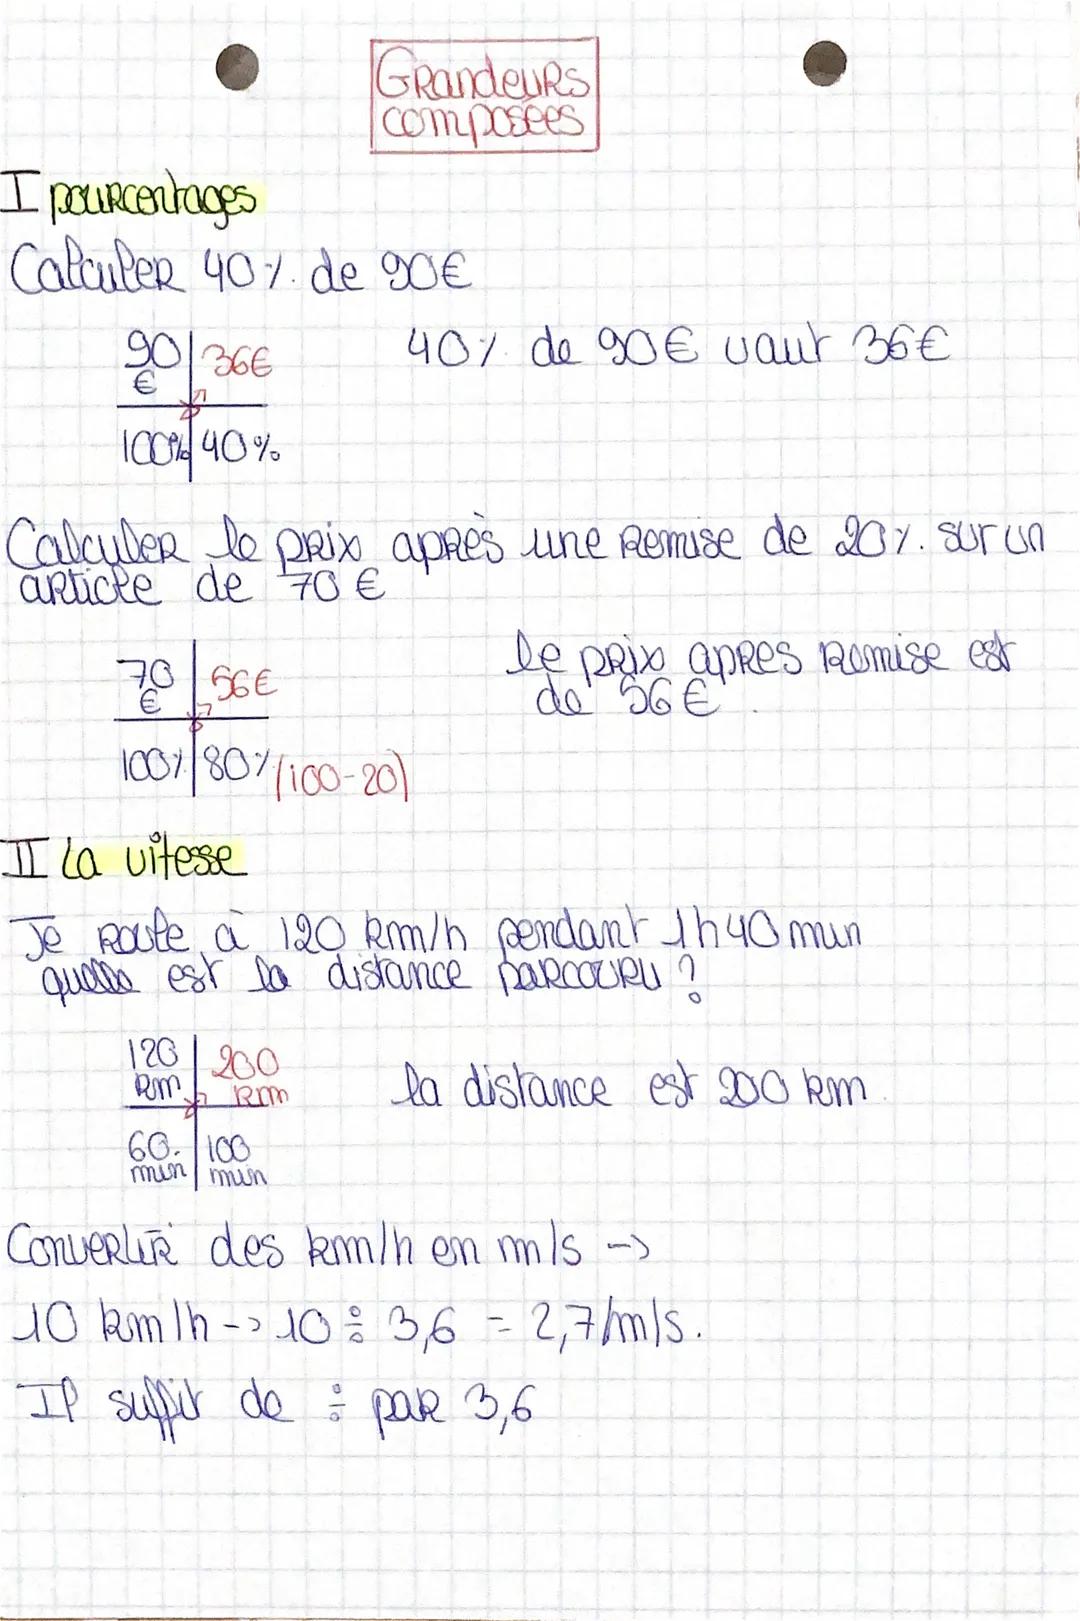 Grandeurs
composées
I pourcentages
Calculer 40% de 90€
90 36€ 40% de 90€ vaut 36€
€
100% 40%
Calculer le prix après une remise de 20% sur un
article de 70 €
70 56€ le prix apres remise est
€ de 56€.
100% 80% (100-20)
II La vitesse
Je roule à 120 km/h pendant 1h40 min
quelle est la distance parcouru ?
120 200
km km la distance est 200 km.
60. 100
min min
Convertir des km/h en m/s ->
10 km/h -> 10 ÷ 3,6 = 2,7/m/s.
Il suffit de ÷ par 3,6